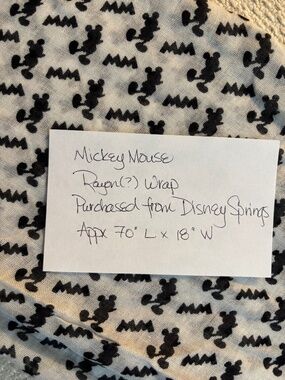 Mickey Mouse
Rayon(?) Wrap
Purchased from Disney Springs
Appx 70" L x 18" W